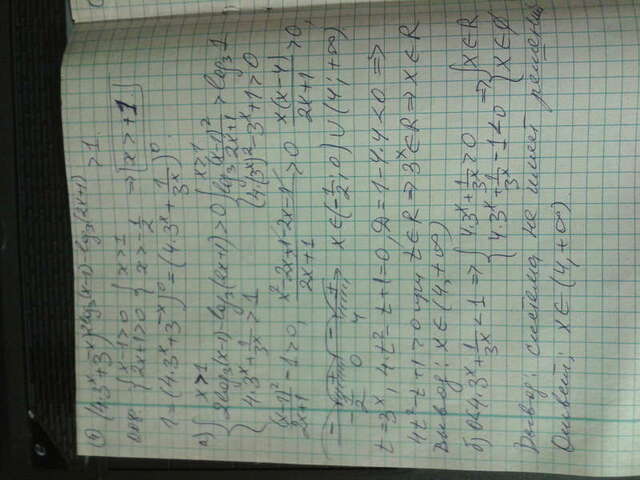 (4·3^x+3^-x)^(2log₃(x-1)-log₃(2x+1)) > 1.
{x-1>0 2x+1>0 {x>1 x>-1/2 => x>+1.
1=(4·3^x+3^-x)^0=(4·3^x+1/3^x)^0
а) {x>1 2log₃(x-1)-log₃(2x+1)>0 4·3^x+1/3^x>1 {x>1 log₃ (x-1)²/2x+1 > log₃1 4(3^x)²-3^x+1>0
(x-1)²/2x+1 -1>0, x²-2x+1-2x-1/2x+1 >0 x(x-4)/2x+1 >0,
-1/2 0 4 x∈(-1/2; 0)∪(4; +∞)
t=3^x, 4t²-t+1=0, D=1-4·4<0 =>
4t²-t+1>0 при t∈R => 3^x∈R => x∈R
Вывод: x∈(4, +∞)
б) 0<4·3^x+1/3^x<1 => {4·3^x+1/3^x>0 4·3^x+1/3^x-1<0 => {x∈R x∈∅
Вывод: система не имеет решений
Ответ: x∈(4, +∞)